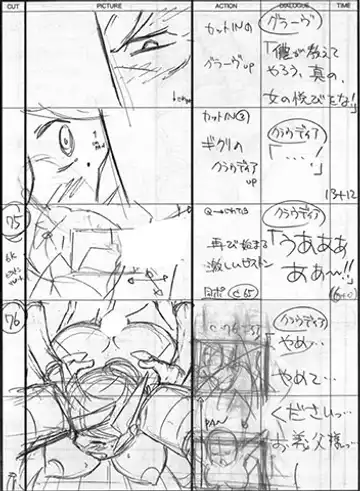 CUT
PICTURE
ACTION
DIALOGUE
TIME
カットINの
グラーヴup
グラーヴ
「僕が教えて
やろう、真の、
女の悦びをな!」
カットIN③
ギクリの
クラウディア
up
クラウディア
「…!」
13+12
75
再び始まる
激しいピストン
クラウディア
「うあああ
ああ〜!!」
76
PAN
クラウディア
「やめ…
やめて…
くださいっ…
お義父様っ…